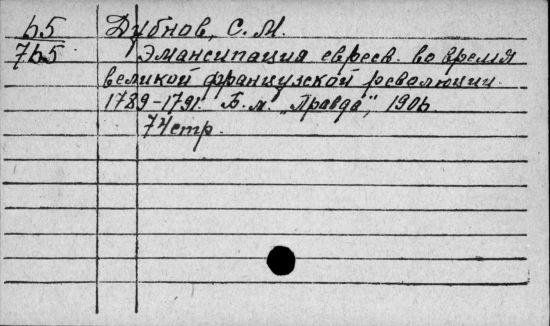 Б5 Дубнов, С. М.
7Б5 Эмансипация евреев. во время
великой французской революции.
1789-1791г. Б. м. „Правда“, 190
74 стр.